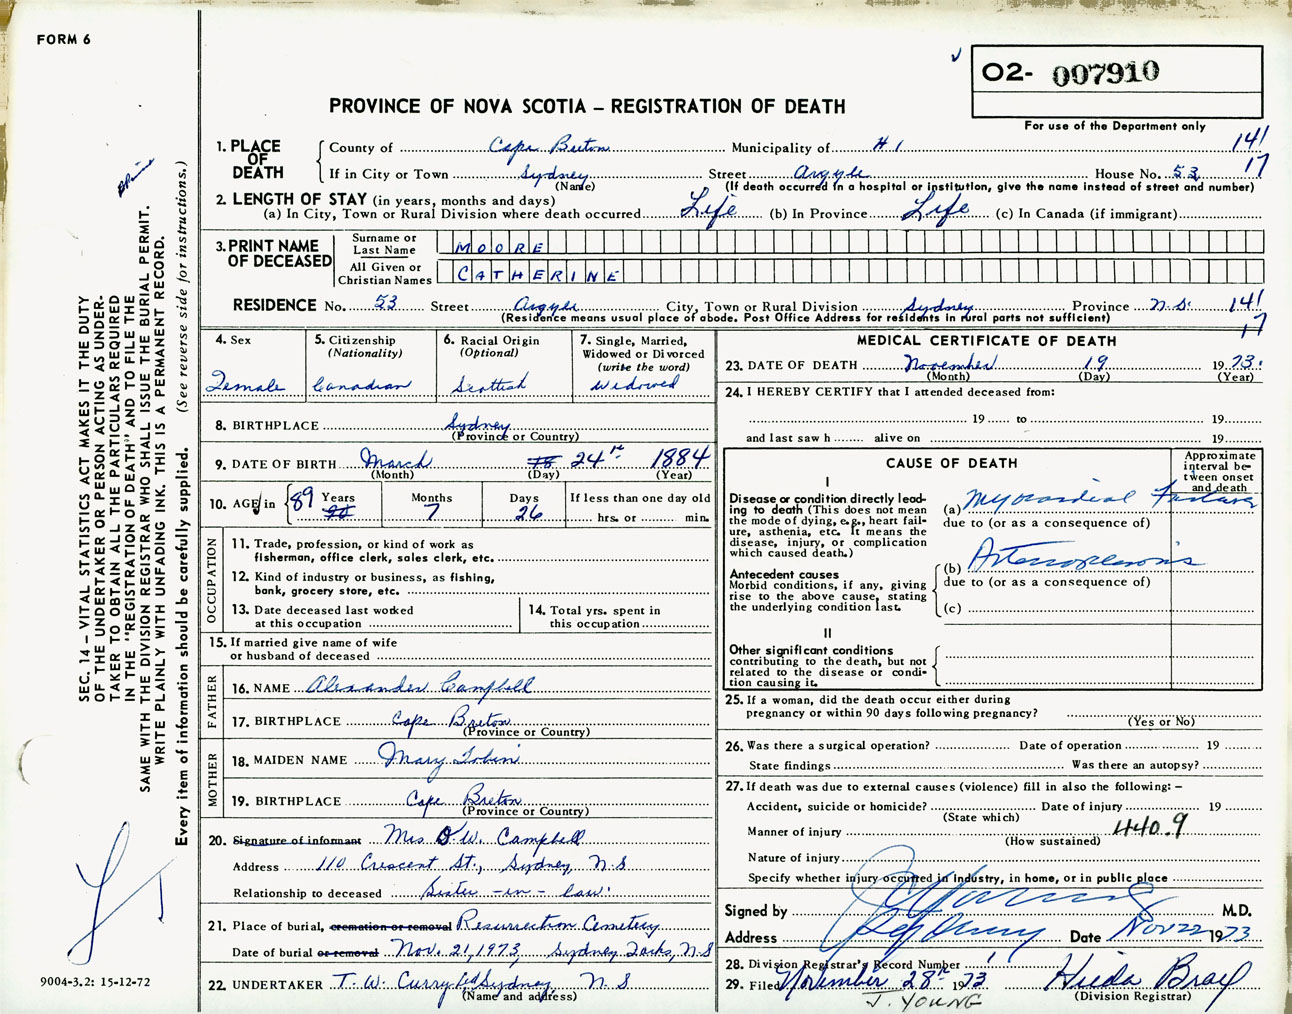 FORM 6
O2- 007910
For use of the Department only
PROVINCE OF NOVA SCOTIA – REGISTRATION OF DEATH
1. PLACE OF DEATH
County of Cape Breton Municipality of # 1 141
If in City or Town Sydney Street Argyle House No. 53 17
(Name) (If death occurred in a hospital or institution, give the name instead of street and number)
2. LENGTH OF STAY (in years, months and days)
(a) In City, Town or Rural Division where death occurred Life (b) In Province Life (c) In Canada (if immigrant)
3. PRINT NAME OF DECEASED
Surname or Last Name MOORE
All Given or Christian Names CATHERINE
RESIDENCE No. 53 Street Argyle City, Town or Rural Division Sydney Province N.S. 141
(Residence means usual place of abode. Post Office Address for residents in rural parts not sufficient) 17
4. Sex Female
5. Citizenship (Nationality) Canadian
6. Racial Origin (Optional) Scottish
7. Single, Married, Widowed or Divorced (write the word) Widowed
8. BIRTHPLACE Sydney
(Province or Country)
9. DATE OF BIRTH March 18 24th 1884
(Month) (Day) (Year)
10. AGE in 89 Years 90 Months 7 Days 26 If less than one day old hrs. or min.
OCCUPATION
11. Trade, profession, or kind of work as fisherman, office clerk, sales clerk, etc.
12. Kind of industry or business, as fishing, bank, grocery store, etc.
13. Date deceased last worked at this occupation
14. Total yrs. spent in this occupation
15. If married give name of wife or husband of deceased
FATHER
16. NAME Alexander Campbell
17. BIRTHPLACE Cape Breton
(Province or Country)
MOTHER
18. MAIDEN NAME Mary Tobin
19. BIRTHPLACE Cape Breton
(Province or Country)
20. Signature of informant Mrs D.W. Campbell
Address 110 Crescent St., Sydney, N.S
Relationship to deceased Sister-in-law
21. Place of burial, cremation or removal Resurrection Cemetery
Date of burial or removal Nov. 21, 1973, Sydney Forks, N.S
22. UNDERTAKER T. W. Curry Ltd Sydney N S
(Name and address)
MEDICAL CERTIFICATE OF DEATH
23. DATE OF DEATH November 19 1973.
(Month) (Day) (Year)
24. I HEREBY CERTIFY that I attended deceased from:
19 to 19
and last saw h alive on 19
CAUSE OF DEATH
Approximate interval between onset and death
I
Disease or condition directly leading to death (This does not mean the mode of dying, e.g., heart failure, asthenia, etc. It means the disease, injury, or complication which caused death.)
(a) Myocardial
due to (or as a consequence of)
Antecedent causes
Morbid conditions, if any, giving rise to the above cause, stating the underlying condition last.
(b)
due to (or as a consequence of)
(c)
II
Other significant conditions
contributing to the death, but not related to the disease or condition causing it.
25. If a woman, did the death occur either during pregnancy or within 90 days following pregnancy?
(Yes or No)
26. Was there a surgical operation? Date of operation 19
State findings Was there an autopsy?
27. If death was due to external causes (violence) fill in also the following: –
Accident, suicide or homicide? Date of injury 19
(State which)
Manner of injury 440.9
(How sustained)
Nature of injury
Specify whether injury occurred in industry, in home, or in public place
Signed by M.D.
Address Sydney Date Nov 22 1973
28. Division Registrar's Record Number 1
29. Filed November 28th 1973 Hilda Bray
J. YOUNG (Division Registrar)
SEC. 14 – VITAL STATISTICS ACT MAKES IT THE DUTY
OF THE UNDERTAKER OR PERSON ACTING AS UNDER-
TAKER TO OBTAIN ALL THE PARTICULARS REQUIRED
IN THE "REGISTRATION OF DEATH" AND TO FILE THE
SAME WITH THE DIVISION REGISTRAR WHO SHALL ISSUE THE BURIAL PERMIT.
WRITE PLAINLY WITH UNFADING INK. THIS IS A PERMANENT RECORD.
Every item of information should be carefully supplied. (See reverse side for instructions.)
9004-3.2: 15-12-72